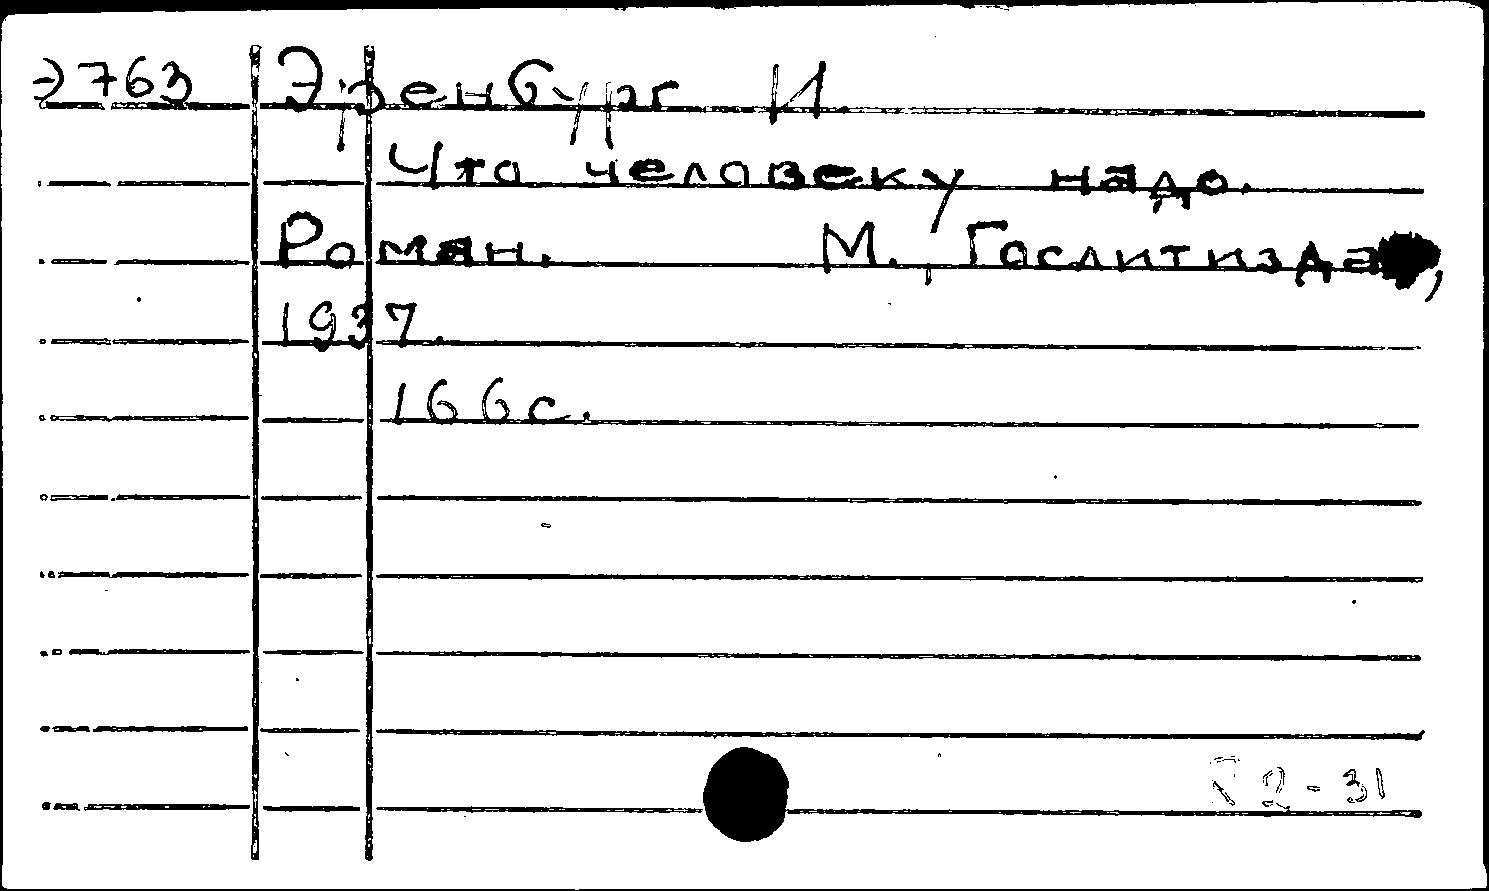 Э763 Эренбург И.
Что человеку надо.
Роман. М., Гослитизда,
1937.
166с.
2-31